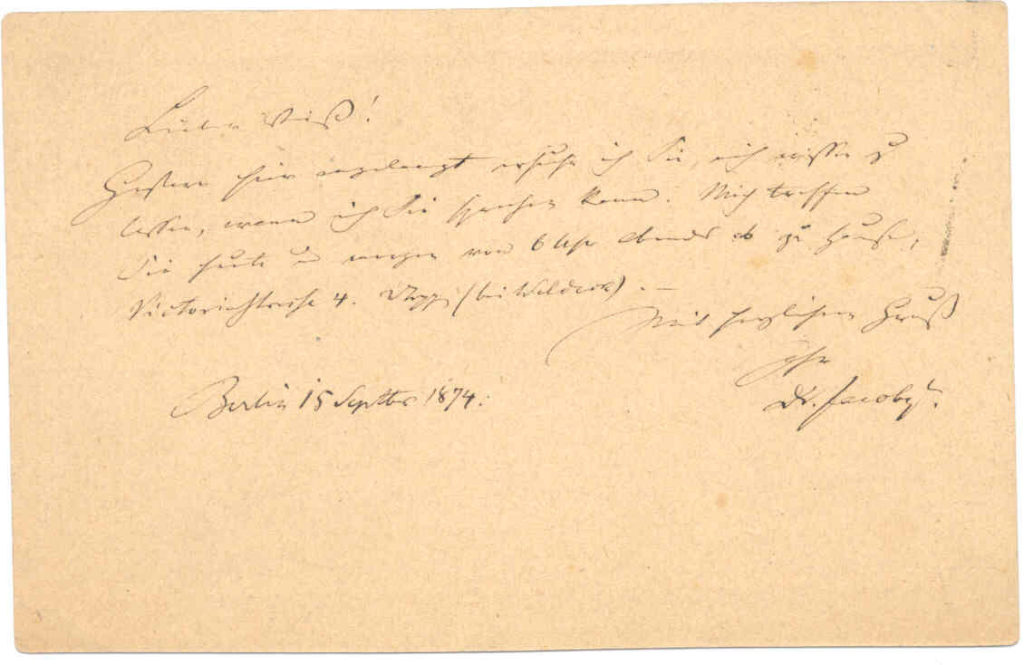 Lieber Weiß!
Gestern hier angelangt ersuche ich Sie, mich wissen zu
lassen, wann ich Sie sprechen kann. Mich treffen
Sie heute u morgen von 6 Uhr Abends ab zu Hause,
Victoriastrasse 4. (bei Waldeck). –
Mit herzlichem Gruß
Ihr
Dr. Jacoby.
Berlin 15 Septbr 1874.